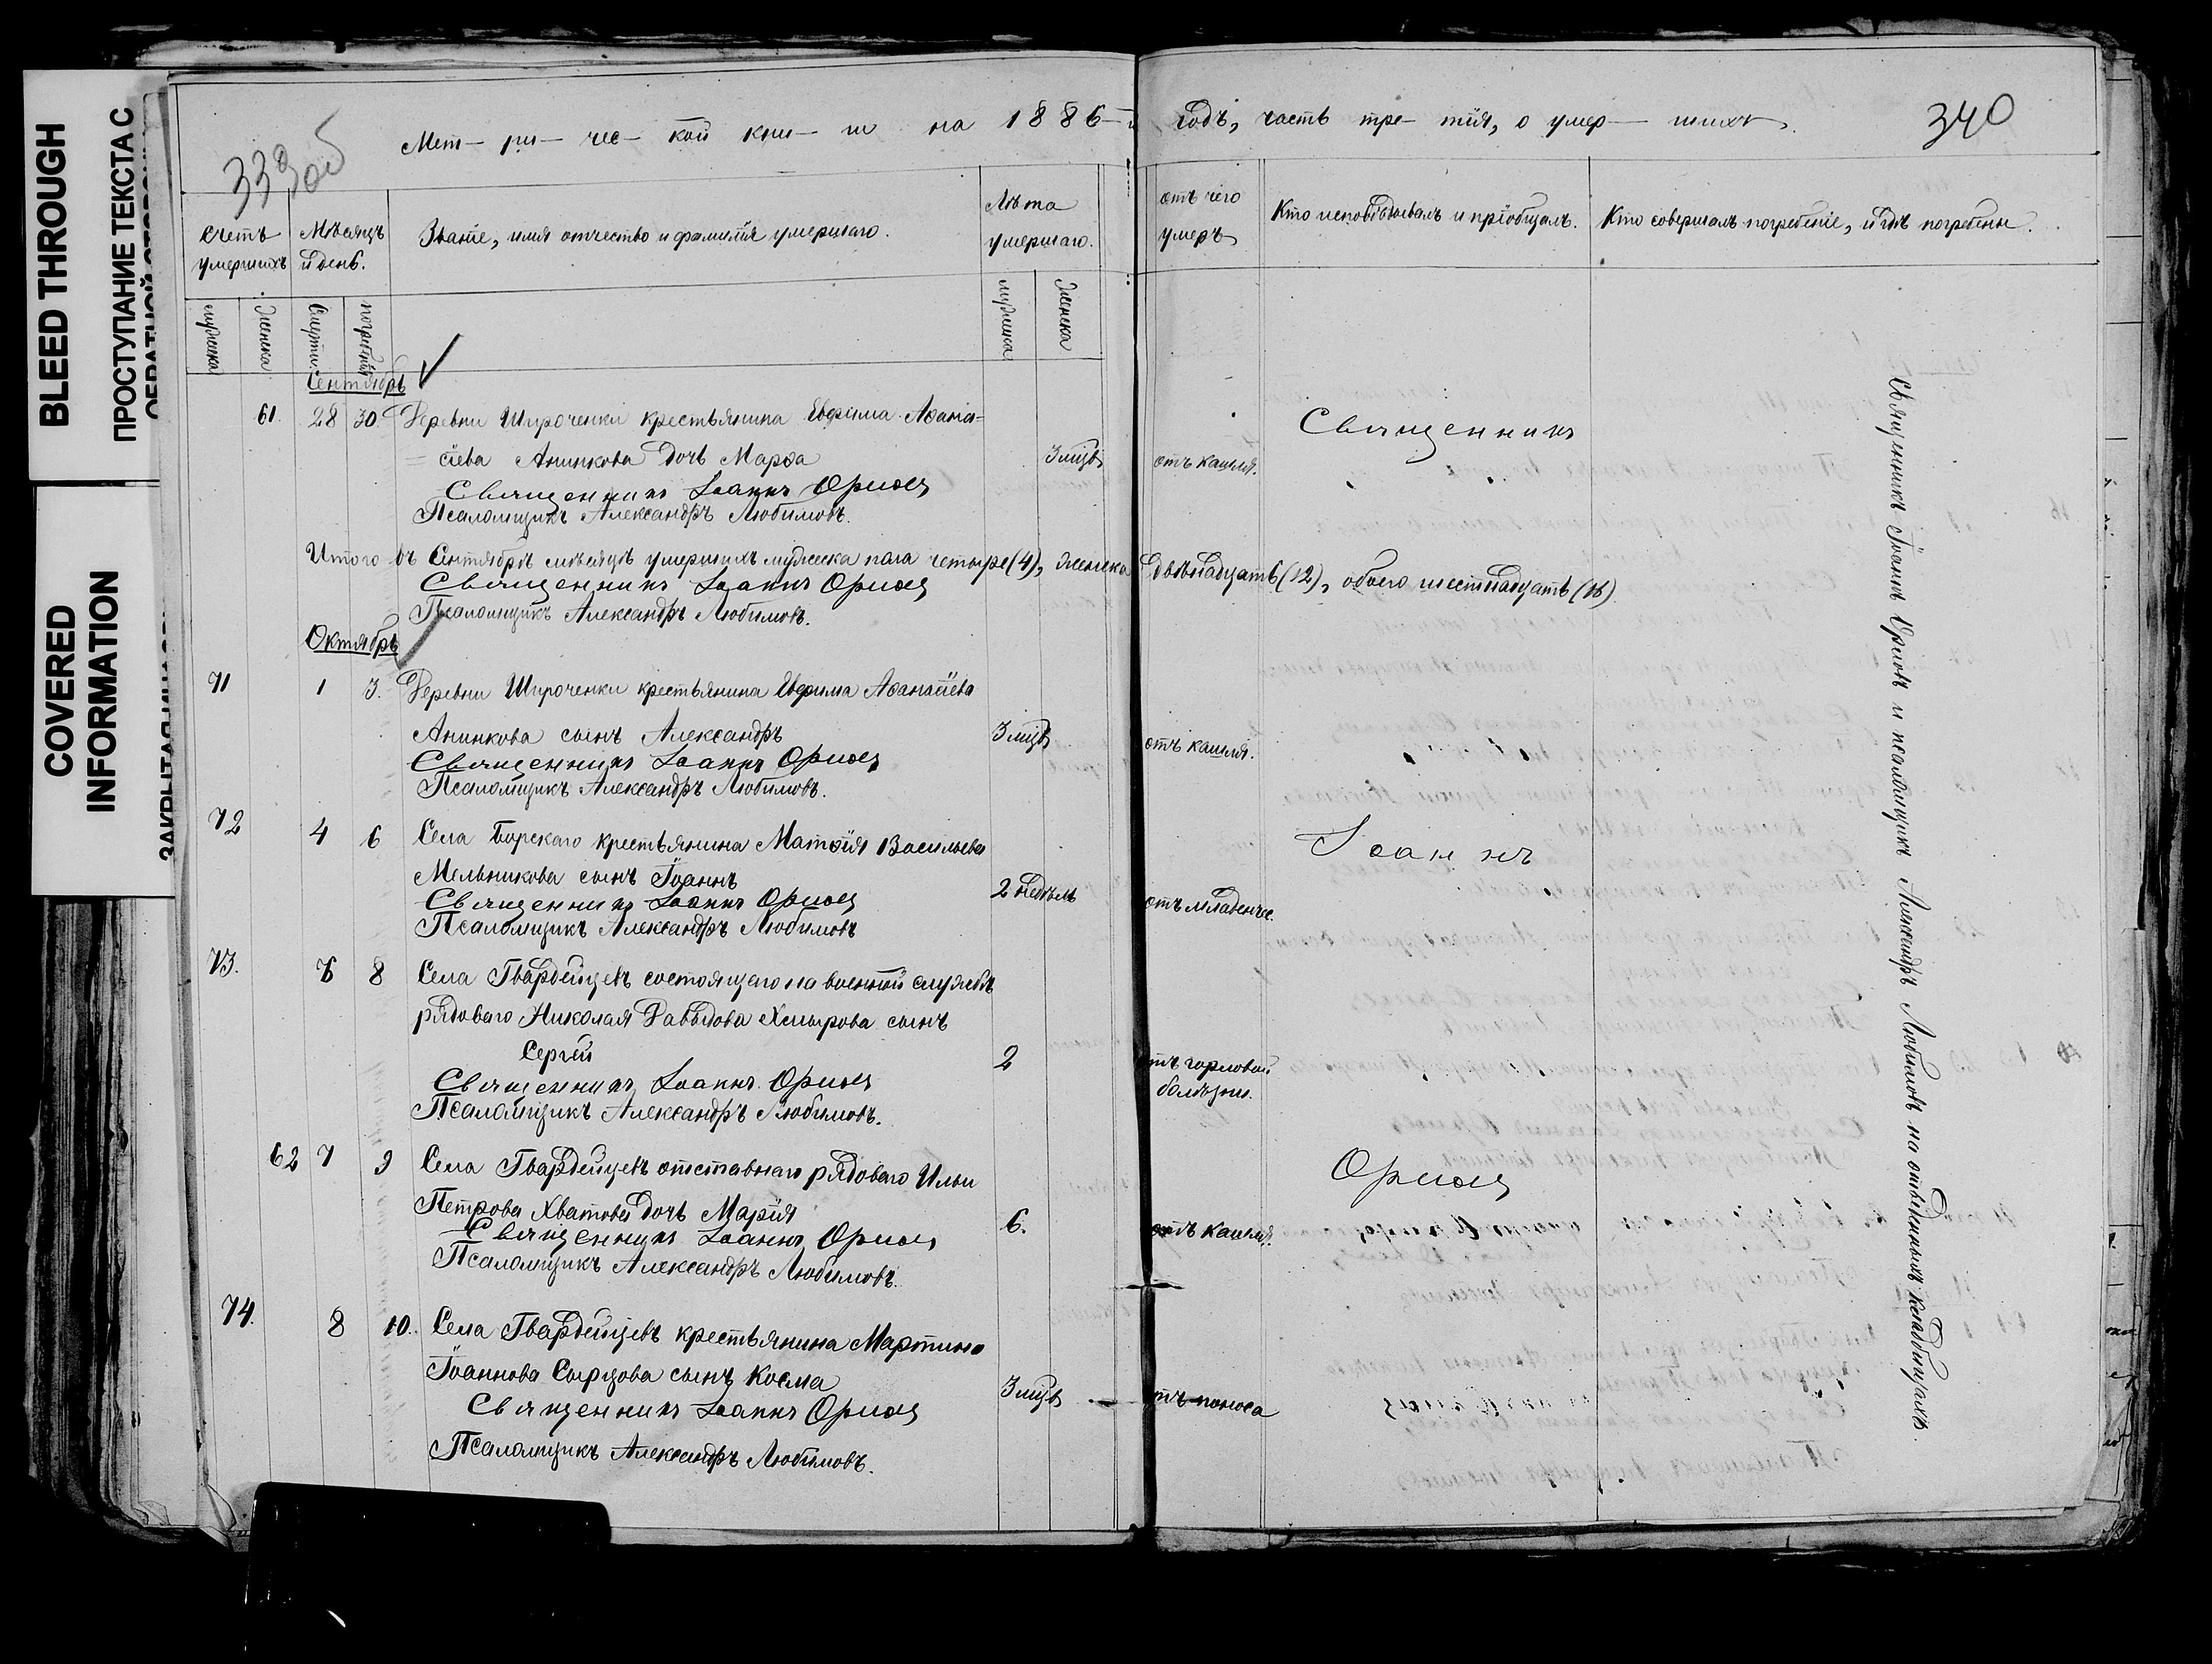 BLEED THROUGH
ПРОСТУПАНИЕ ТЕКСТА С
COVERED
INFORMATION
339 об
Мет- ри- чес- кой кни- ги на 1886 годъ, часть тре- тія, о умер- шихъ.
340
Счетъ умершихъ
Мѣсяцъ и день.
Званіе, имя отчество и фамилія умершаго.
Лѣта умершаго.
отъ чего умеръ
Кто исповѣдывалъ и пріобщалъ.
Кто совершалъ погребеніе, и гдѣ погребены.
мужеска
женска
Смерти
погребенія
мужеска
женска
Сентябрь
61. 28 30. Деревни Широченки крестьянина Евфима Аѳана-
сіева Анинкова дочь Марѳа 3 мцв отъ кашля.
Священникъ Іоаннъ Орловъ
Псаломщикъ Александръ Любимовъ.
Итого въ Сентябрѣ мѣсяцѣ умершихъ мужеска пола четыре (4), женска двѣнадцать (12), обоего шестнадцать (16)
Священникъ Іоаннъ Орловъ
Псаломщикъ Александръ Любимовъ.
Октябрь
71 1 3. Деревни Широченки крестьянина Евфима Аѳанасіева
Анинкова сынъ Александръ 3 мцв отъ кашля.
Священникъ Іоаннъ Орловъ
Псаломщикъ Александръ Любимовъ.
72 4 6 Села Борскаго крестьянина Матѳія Васильева
Мельникова сынъ Іоаннъ 2 недѣль отъ младенчес.
Священникъ Іоаннъ Орловъ
Псаломщикъ Александръ Любимовъ
73. 6 8 Села Гвардейцевъ состоящаго на военной службѣ
рядоваго Николая Давыдова Хмырова сынъ
Сергей 2 отъ горловой
болѣзни.
Священникъ Іоаннъ Орловъ
Псаломщикъ Александръ Любимовъ.
62 7 9 Села Гвардейцевъ отставнаго рядоваго Ильи
Петрова Хватова дочь Марія 6. отъ кашля.
Священникъ Іоаннъ Орловъ
Псаломщикъ Александръ Любимовъ.
74. 8 10. Села Гвардейцевъ крестьянина Мартина
Іоаннова Сырцова сынъ Косма 3 мцв отъ поноса
Священникъ Іоаннъ Орловъ
Псаломщикъ Александръ Любимовъ.
Священникъ
Іоаннъ
Орловъ
Священникъ Іоаннъ Орловъ и псаломщикъ Александръ Любимовъ на отведенныхъ кладбищахъ.